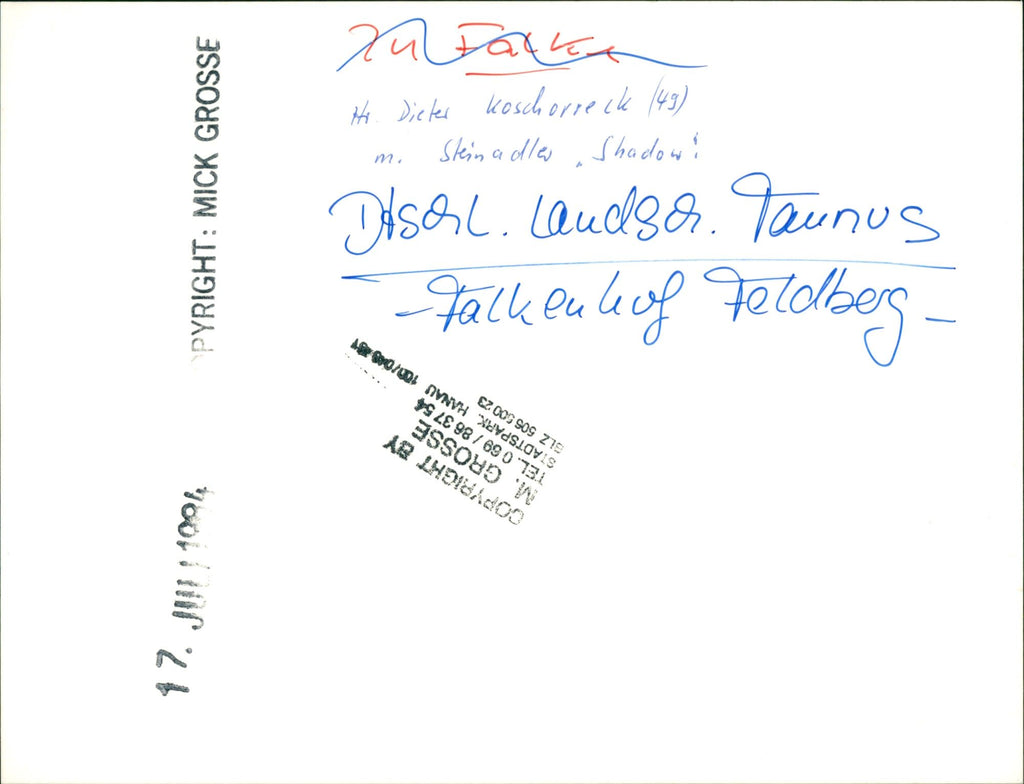 Zu Falke
Hr. Dieter Koschorreck (49)
m. Steinadler „Shadow“.
Dtschl. Landsch. Taunus
- Falkenhof Feldberg -
PYRIGHT: MICK GROSSE
17. JULI 1994
COPYRIGHT BY
M. GROSSE
TEL. 0 69 / 86 37 54
STADTSPARK. HANAU
BLZ 506 500 23